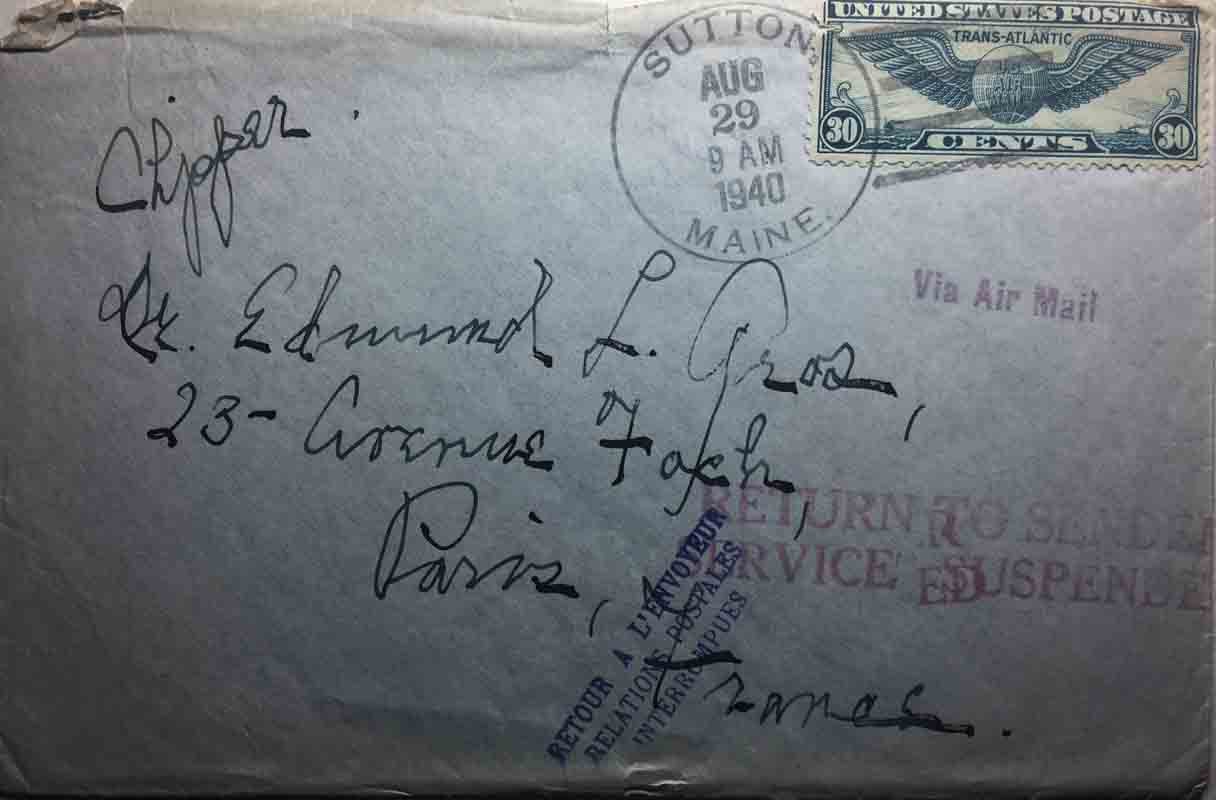 UNITED STATES POSTAGE
TRANS-ATLANTIC
U.S.
AIR
MAIL
30 CENTS 30
SUTTON
AUG
29
9 AM
1940
MAINE.
Clipper.
Via Air Mail
Dr. Edmund L. Gros,
23- Avenue Foch,
Paris,
France.
RETURN TO SENDER
SERVICE SUSPENDED
RETOUR A L'ENVOYEUR
RELATIONS POSTALES
INTERROMPUES